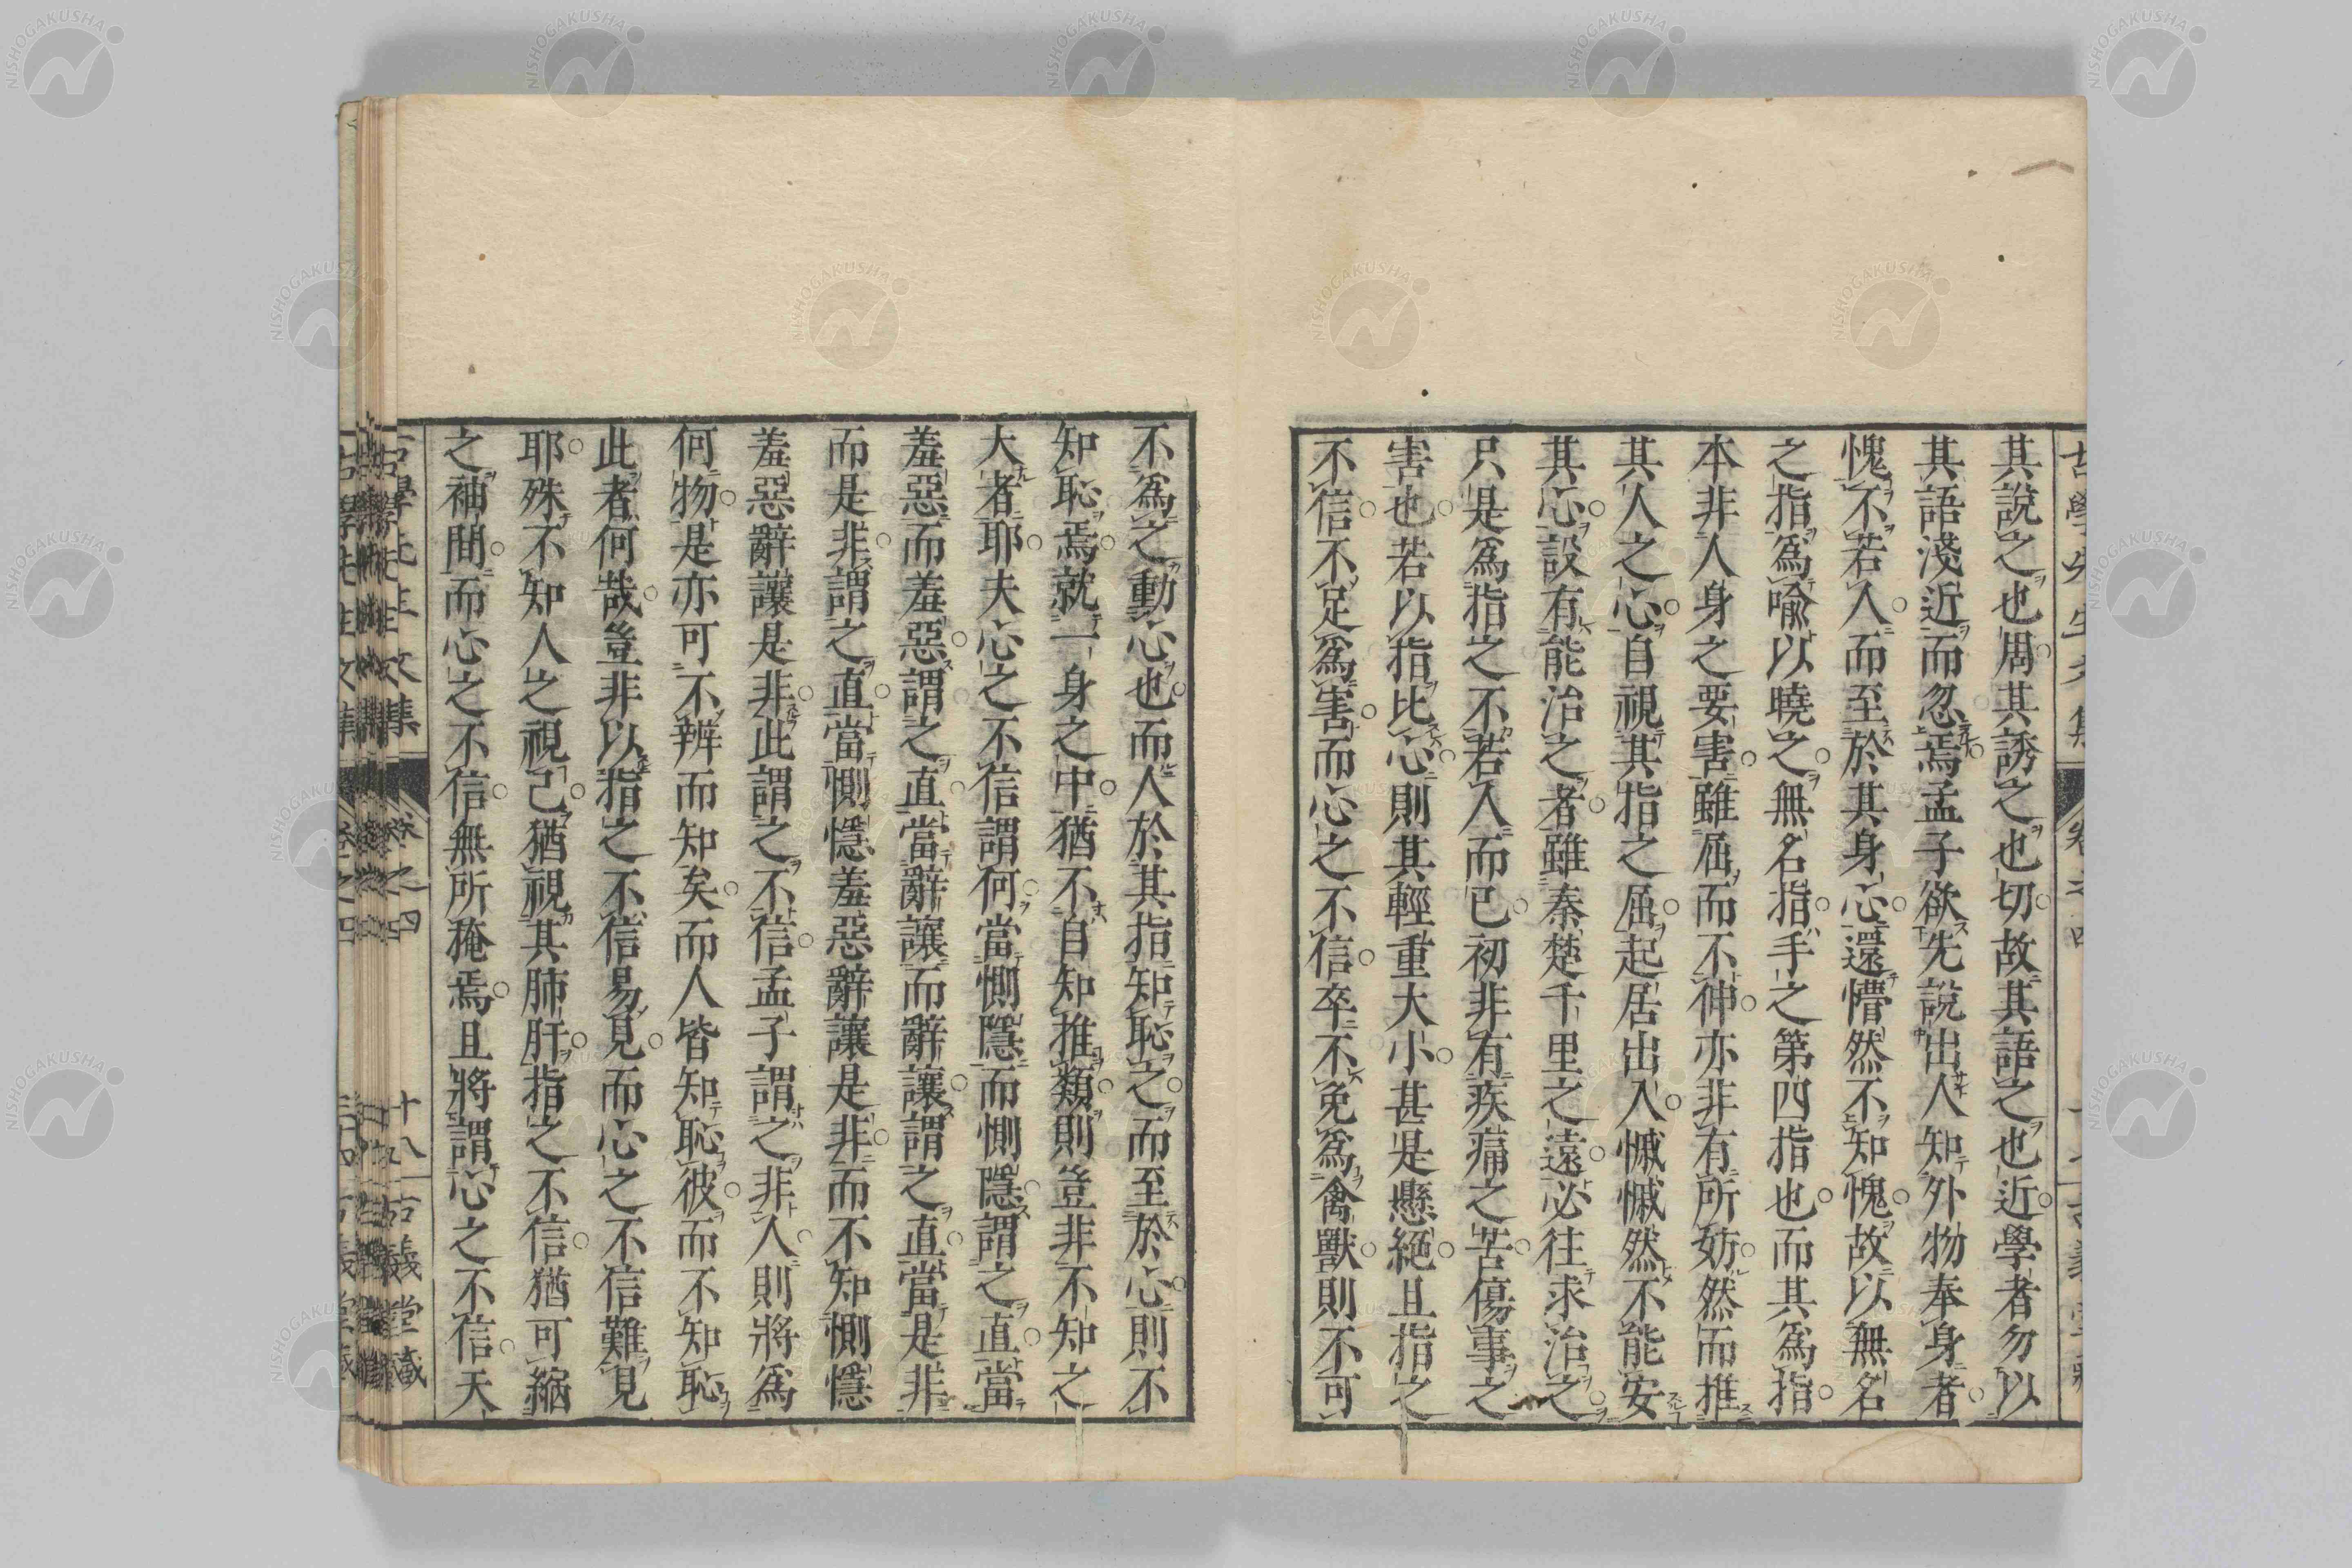 其說之也周其誘之也切故其語之也近學者勿以
其語淺近而忽焉孟子欲先說出人知外物奉身者
愧不若人而至於其身心還懵然不知愧故以無名
之指爲喩以曉之無名指手之第四指也而其爲指
本非人身之要害雖屈而不伸亦非有所妨然而推
其人之心自視其指之屈起居出入慽慽然不能安
其心設有能治之者雖秦楚千里之遠必往求治之
只是爲指之不若人而已初非有疾痛之苦傷事之
害也若以指比心則其輕重大小甚是懸絕且指之
不信不足爲害而心之不信卒不免爲禽獸則不可
不爲之動心也而人於其指知恥之而至於心則不
知恥焉就一身之中猶不自知推類則豈非不知之
大者耶夫心之不信謂何當惻隱而惻隱謂之直當
羞惡而羞惡謂之直當辭讓而辭讓謂之直當是非
而是非謂之直當惻隱羞惡辭讓是非而不知惻隱
羞惡辭讓是非此謂之不信孟子謂之非人則將爲
何物是亦可不辨而知矣而人皆知恥彼而不知恥
此者何哉豈非以指之不信易見而心之不信難見
耶殊不知人之視己猶視其肺肝指之不信猶可縮
之袖間而心之不信無所掩焉且將謂心之不信天
古學先生文集 卷之四 十八 古義堂藏